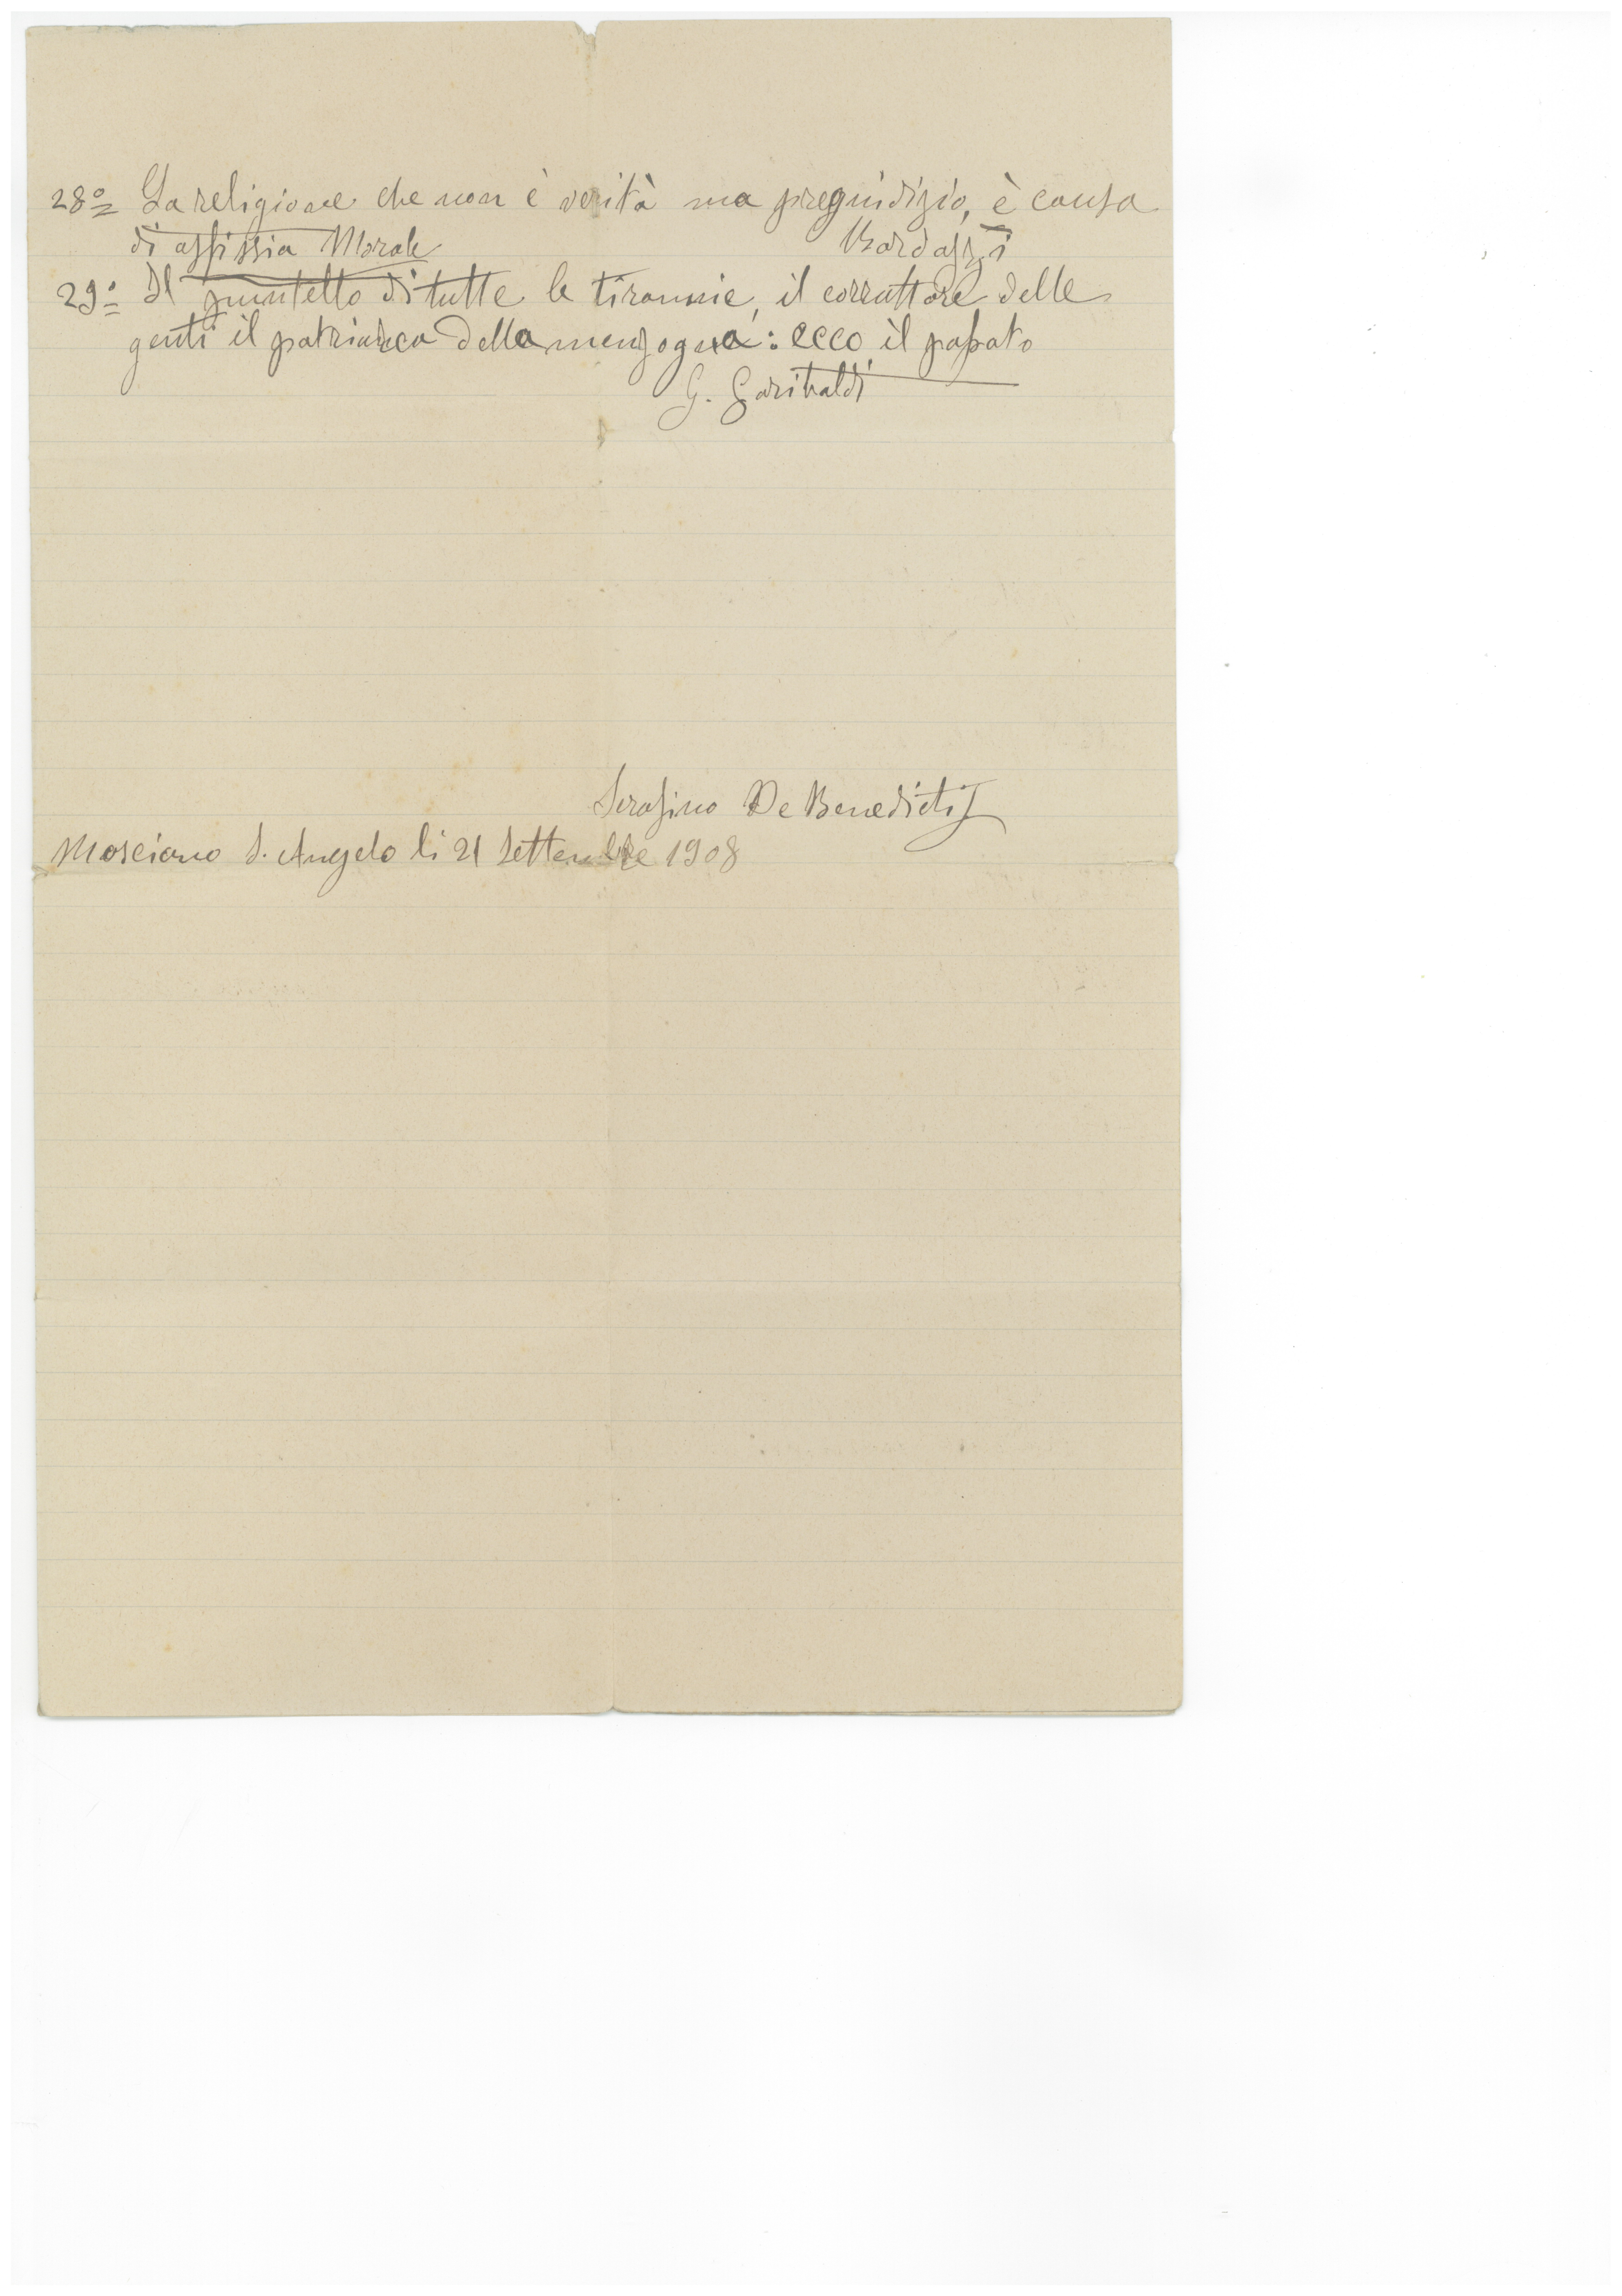 28º La religione che non è verità ma pregiudizio, è causa
di asfissia Morale Bardazzi
29º Il puntello di tutte le tirannie, il corruttore delle
genti il patriarca della menzogna: ecco il papato
G. Garibaldi
Serafino De Benedictis
Mosciano S. Angelo li 21 Settembre 1908